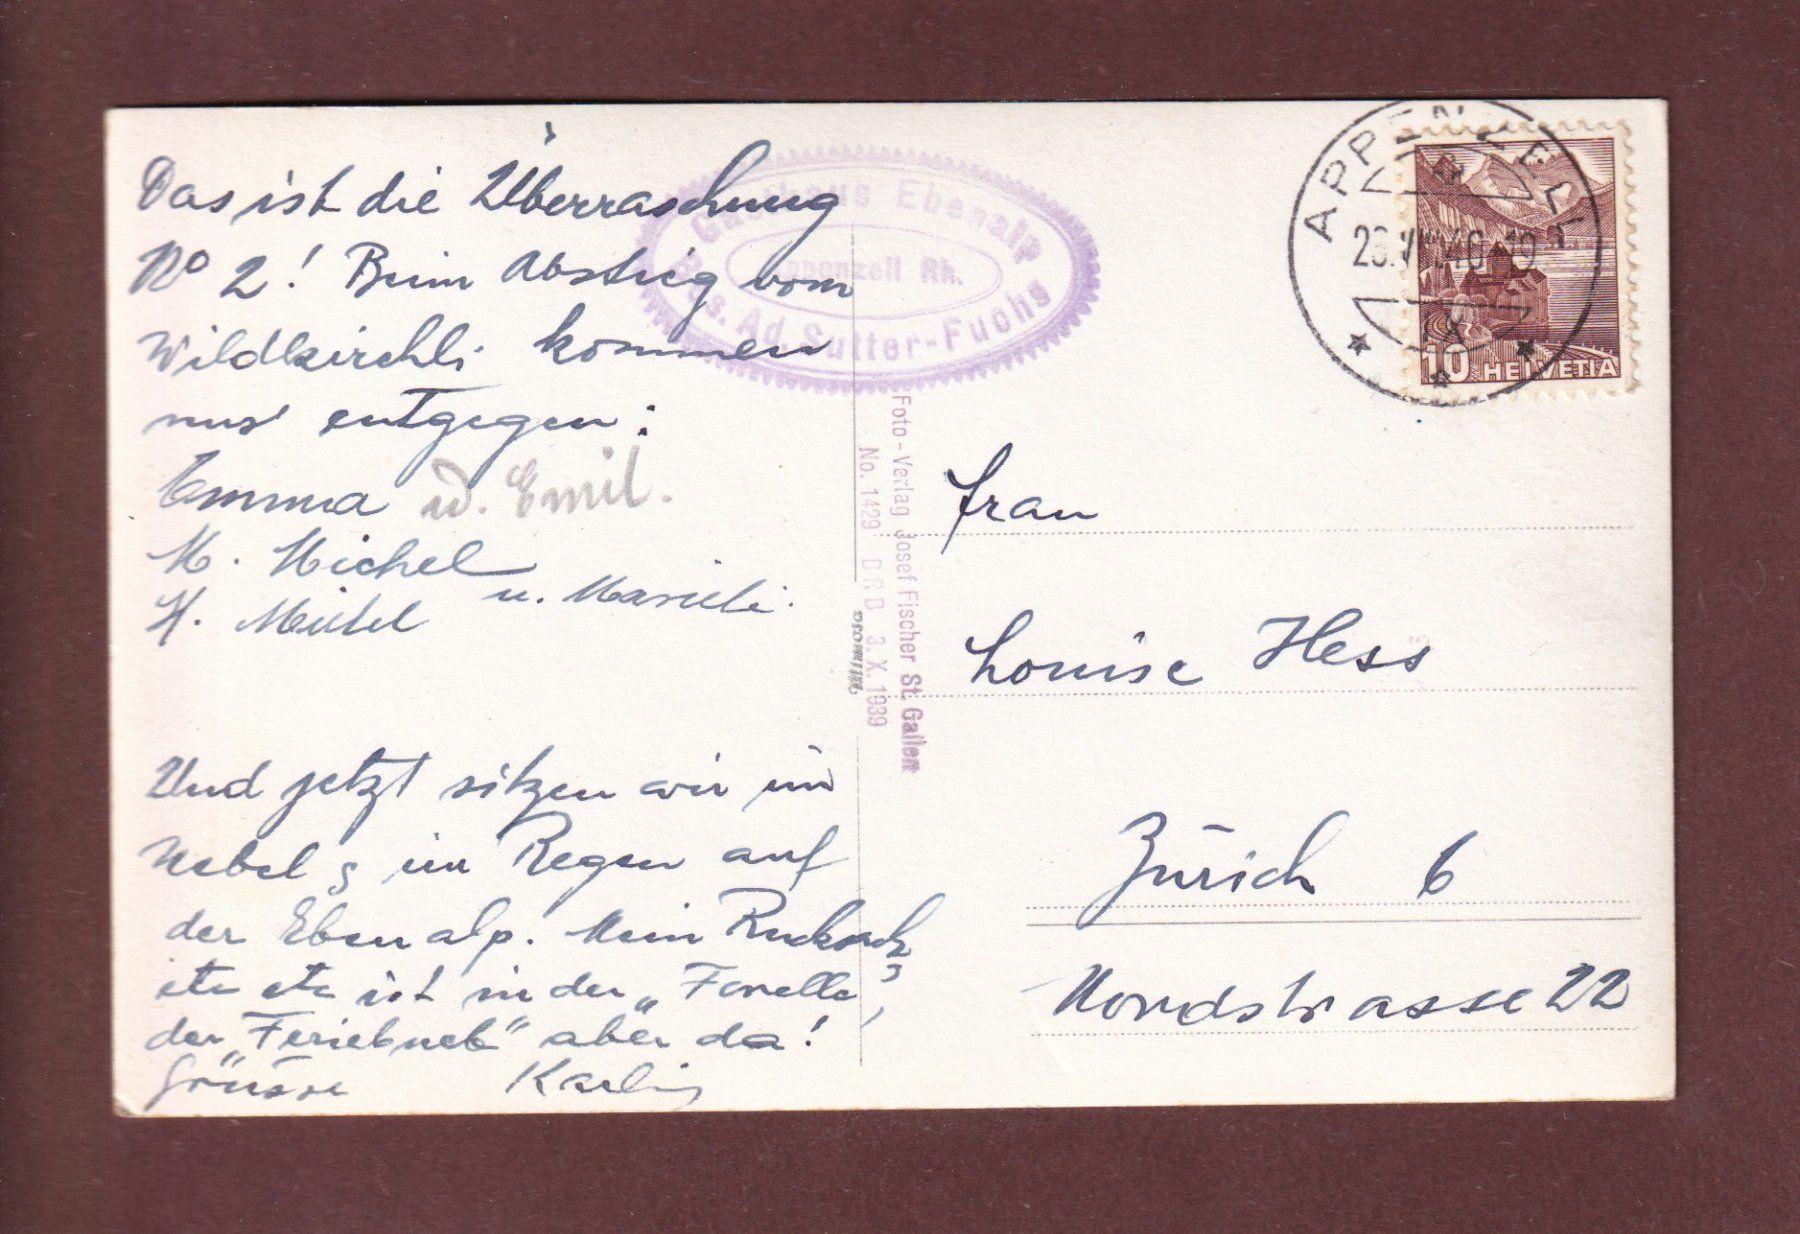 Das ist die Überraschung
No 2! Beim Abstieg vom
Wildkirchli kommen
uns entgegen:
Emma u. Emil.
M. Michel
u. Marieli.
H. Michel
Und jetzt sitzen wir im
Nebel & im Regen auf
der Ebenalp. Mein Rucksack,
etc etc ist in der "Forelle",
der aber da!
Grüsse Karli
Gasthaus Ebenalp
Appenzell Rh.
Bes. Ad. Sutter-Fuchs
Foto-Verlag Josef Fischer St. Gallen
No. 1429 BRB 3.X.1939
APPENZELL
40-19
10 HELVETIA
Frau
Louise Hess
Zürich 6
Nordstrasse 22